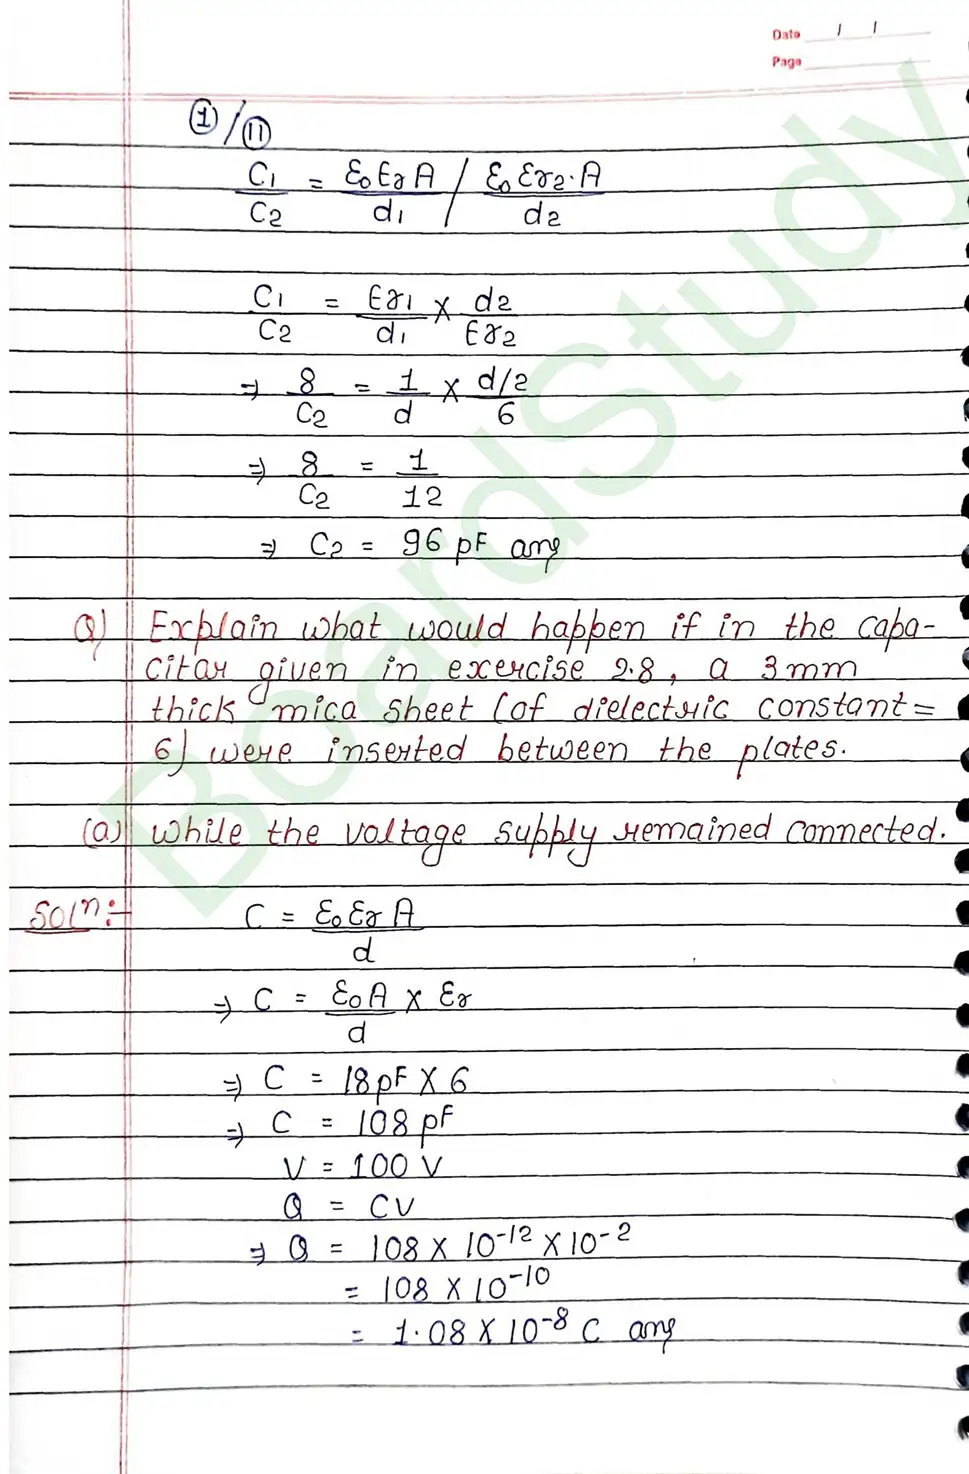 Date / /
Page
① / ⑪
C1/C2 = ε0 εr A/d1 / ε0 εr2 · A/d2
C1/C2 = εr1/d1 × d2/εr2
⇒ 8/C2 = 1/d × d/2/6
⇒ 8/C2 = 1/12
⇒ C2 = 96 pF ans
Q) Explain what would happen if in the capa-
citor given in exercise 2.8, a 3mm
thick mica sheet (of dielectric constant =
6) were inserted between the plates.
(a) While the voltage supply remained connected.
Solⁿ:- C = ε0 εr A/d
⇒ C = ε0 A/d × εr
⇒ C = 18 pF × 6
⇒ C = 108 pF
V = 100 V
Q = CV
⇒ Q = 108 × 10⁻¹² × 10⁻²
= 108 × 10⁻¹⁰
= 1.08 × 10⁻⁸ C ans
BoardStudy